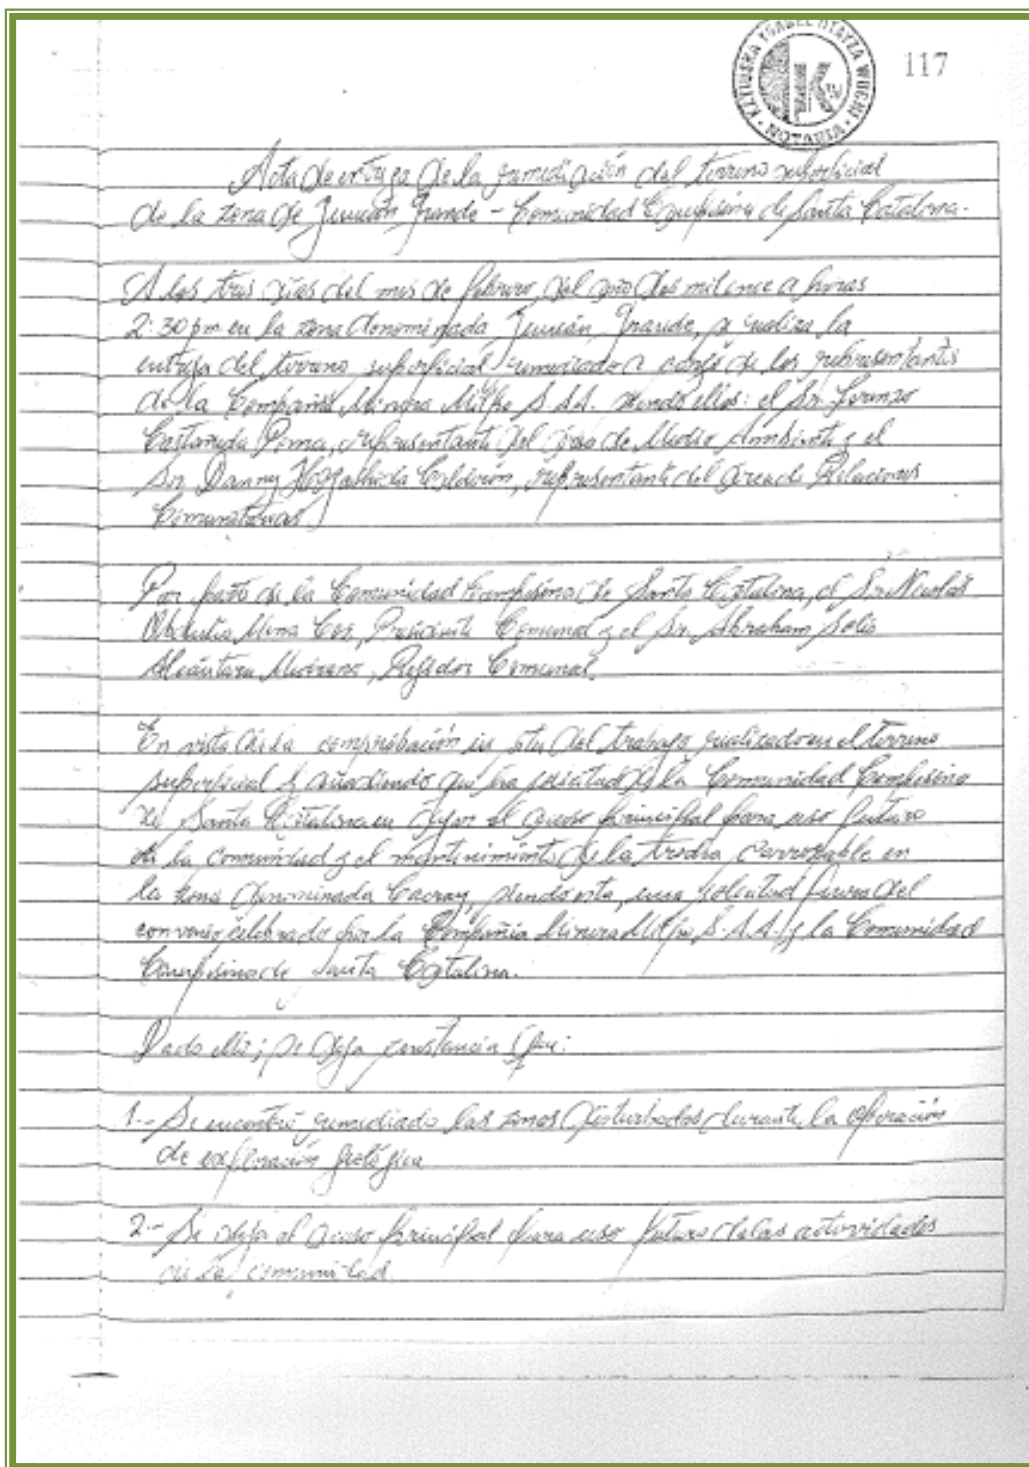 KATIUSKA YSABEL OTAYZA WUCHI · NOTARIA ·
117
Acta de entrega de la remediación del terreno superficial
de la zona de Jumcán Grande - Comunidad Campesina de Santa Catalina.
A los tres días del mes de febrero del año dos mil once a horas
2:30 pm en la zona denominada Grande, se realiza la
entrega del terreno superficial remediado a cargo de los representantes
de la Compañía Minera Milpo S.A.A. siendo ellos: el Sr. Lorenzo
Castañeda Poma, representante del área de Medio Ambiente y el
Sr. Danny Calderón, representante del área de Relaciones
Comunitarias.
Por parte de la Comunidad Campesina de Santa Catalina, el Sr. Nicolás
Mena Presidente Comunal y el Sr. Abraham Solis
Alcántara Moreno, Regidor Comunal.
En vista de la comprobación in situ del trabajo realizado en el terreno
superficial y añadiendo que fue solicitud de la Comunidad Campesina
de Santa Catalina en dejar el acceso principal para uso futuro
de la comunidad y el mantenimiento de la trocha carrozable en
la zona denominada Cacray, siendo esta, una solicitud fuera del
convenio celebrado por la Compañía Minera Milpo S.A.A. y la Comunidad
Campesina de Santa Catalina.
Dado ello; se deja constancia que:
1.- Se encontró remediado las zonas disturbadas durante la operación
de exploración geológica
2.- Se deja el acceso principal para uso futuro de las actividades
de la comunidad.